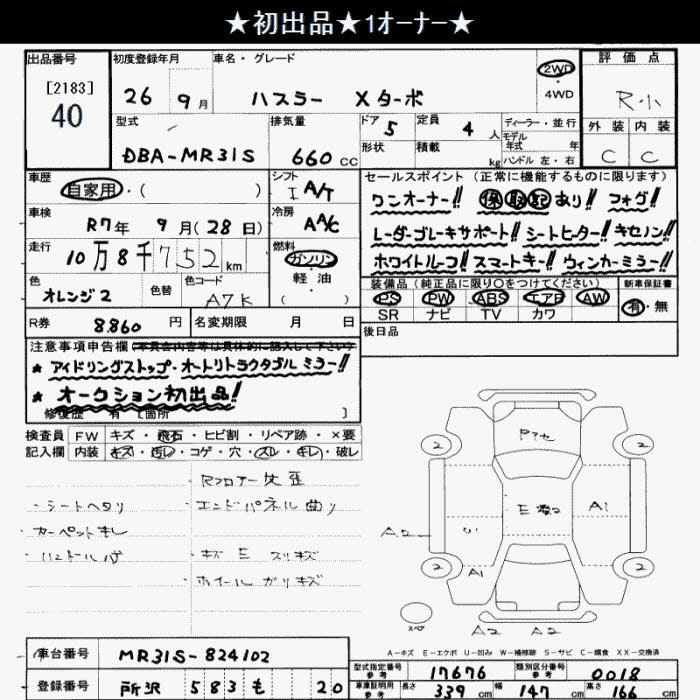 ★初出品★1オーナー★
出品番号
[2183]
40
初度登録年月
26 9月
車名・グレード
ハスラー Xターボ
2WD
・
4WD
評価点
R・小
外装 内装
C C
型式
DBA-MR31S
排気量
660 CC
ドア 5
形状
定員 4 人
積載 kg
ディーラー・並行
モデル
年式 年
ハンドル 左・右
車歴
自家用・( )
シフト
I A/T
セールスポイント (正常に機能するものに限ります)
ワンオーナー!! 保取記あり!! フォグ!
レーダーブレーキサポート!! シートヒーター! キセノン!!
ホワイトルーフ! スマートキー! ウィンカーミラー!!
車検
R7年 9月(28日)
冷房
AAC
走行
10万8千752km
燃料
ガソリン
・
軽油
( )
色
オレンジ2
色替
色コード
A7K
装備品(純正品に限り○をつけてください)
PS PW ABS エアB AW
SR ナビ TV カワ
新車保証書
有・無
R券 8.860 円
名変期限 月 日
後日品
注意事項申告欄(不具合内容等は具体的に記入して下さい)
★ アイドリングストップ・オートリトラクタブルミラー!!
★ オークション初出品!
修復歴 有 [箇所 ]
検査員 FW キズ・飛石・ヒビ割・リペア跡・×要
記入欄 内装 キズ・汚レ・コゲ・穴・スレ・キレ・破レ
Rフロアー歪
・シートヘタリ ・エンドパネル曲り
・カーペットキレ
・キズ E スリキズ
・ホイールガリキズ
2 2
E
A1
A2
U1
A1
2 2
スペア
A2 A2
A-キズ E-エクボ U-凹み W-補修跡 S-サビ C-腐食 XX-交換済
車台番号 MR31S-824102
登録番号 所沢 583 も 20
型式指定番号
参考 17676
類別区分番号
参考 0018
車庫証明用
参考 長さ 339 cm 幅 147 cm 高さ 166 cm